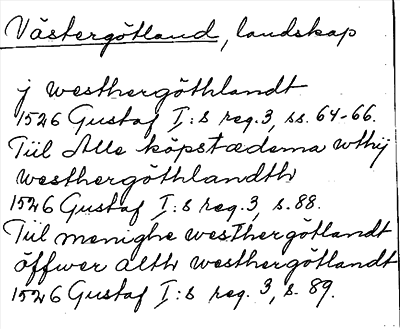 Västergötland, landskap
j westhergöthlandt
1526 Gustaf I:s reg. 3, ss. 64-66.
Tiil Alle köpstædema wthij
westhergöthlandth
1526 Gustaf I:s reg. 3, s. 88.
Tiil menighe westhergötlandt
öffwer alth westhergötlandt
1526 Gustaf I:s reg. 3, s. 89.